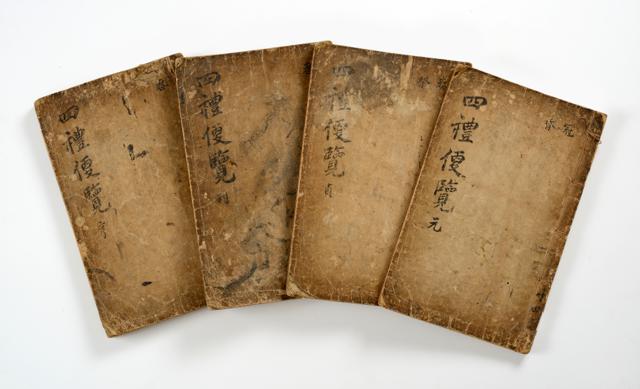 四禮便覽 亨
四禮便覽 利
四禮便覽 貞
祭
四禮便覽 元
冠
昏